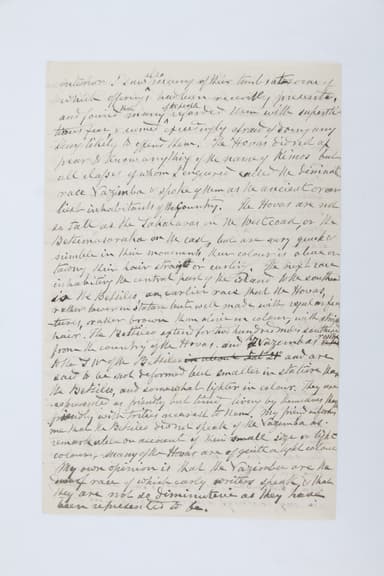 interior I saw also many of their tombs at some of
which offerings had been recently presented,
and found many of the people regarded them with superstitious
fear & seemed exceedingly afraid of doing any
thing likely to offend them. The Hovas did not ap
pear to know anything of the name of Kimos but
all classes of whom I enquired called the diminutive
race Vazimba & spoke of them as the ancient or ear
liest inhabitants of the Country. The Hovas are not
so tall as the Sakalavas on the West coast, or the
Betsimisaraka on the east, but are very quick &
nimble in their movements, their colour is olive or
tawny their hair straight or curling. The next race
inhabiting the central part of the Island to the southward
is the Betsileo, an earlier race than the Hovas,
rather lower in stature but well made with regular fea
tures, rather brown than olive in colour, with straight
hair. The Betsileo extend for two hundred miles southward
from the country of the Hovas. and the Vazimbas reside
to the S W of the Betsileo and are
said to be not deformed but smaller in stature than
the Betsileo, and somewhat lighter in colour. They are
represented as friendly but timid living by themselves but
friendly with tribes nearest to them. My friend informs
me that the Betsileo did not speak of the Vazimba as
remarkable on account of their small size or light
colour, many of the Hovas are of quite a light colour
My own opinion is that the Vazimba are the
race of which early writers speak, & that
they are not so diminutive as they have
been represented to be.